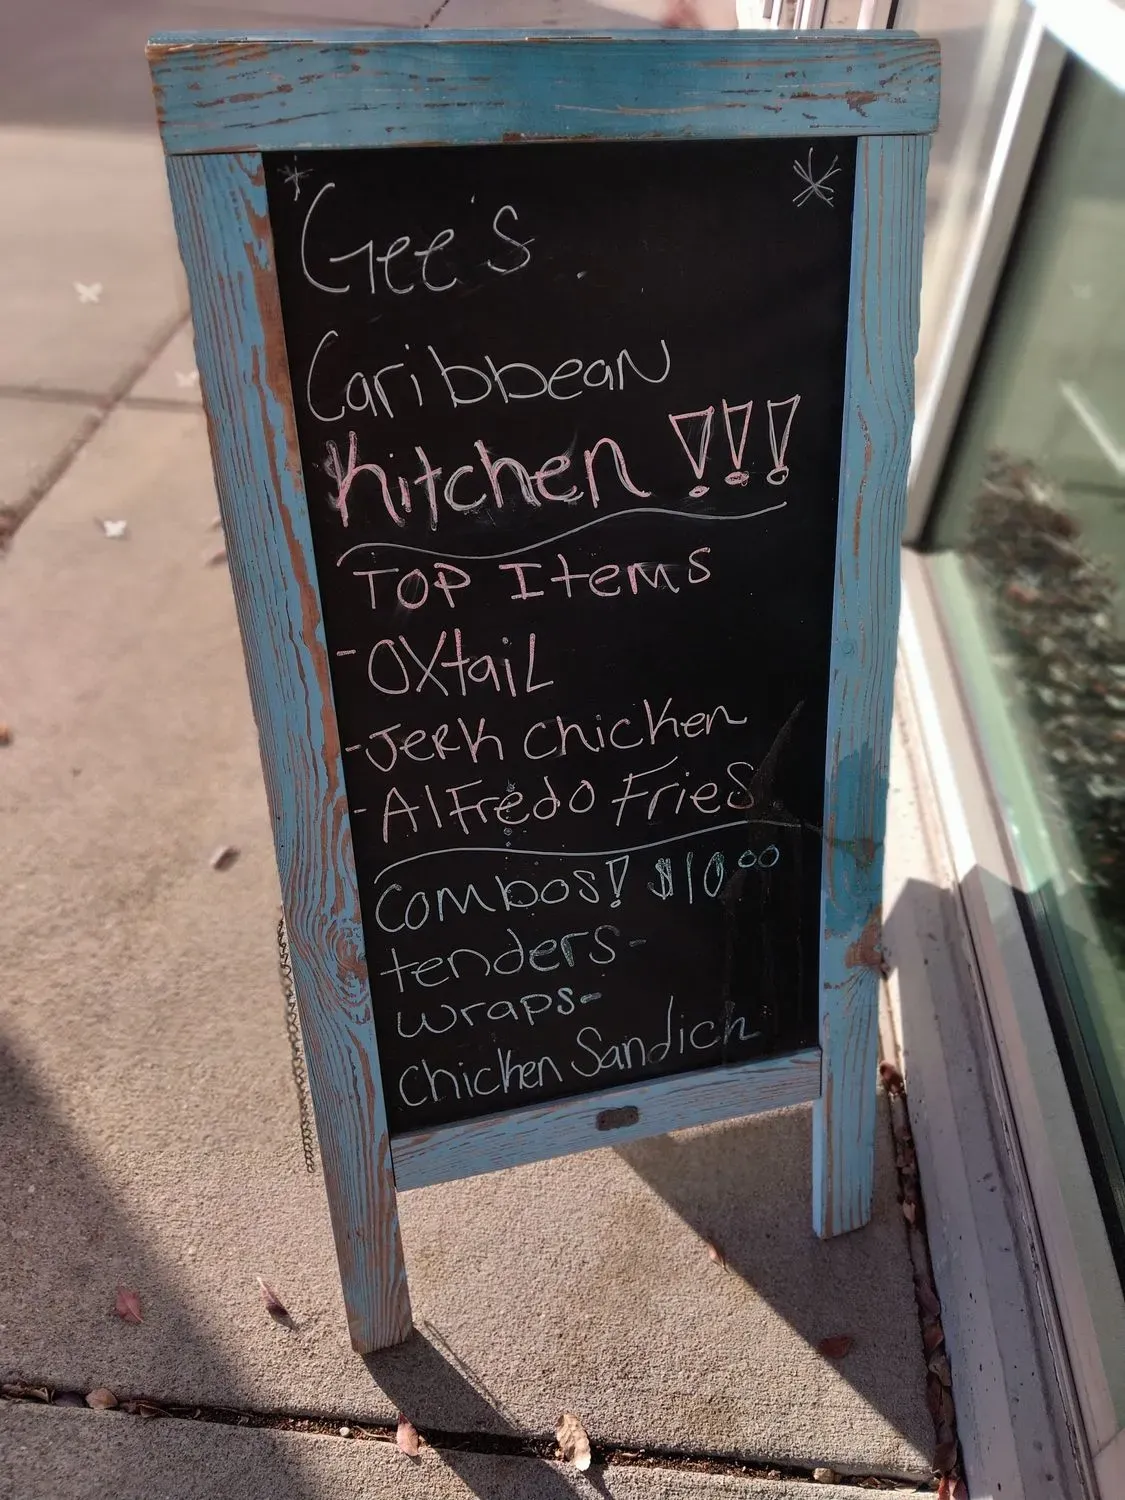 Gee's
Caribbean
Kitchen !!!
TOP Items
-OXtaiL
-JERK chicken
-AlFredo Fries
Combos! $10.00
tenders-
wraps-
Chicken Sandich